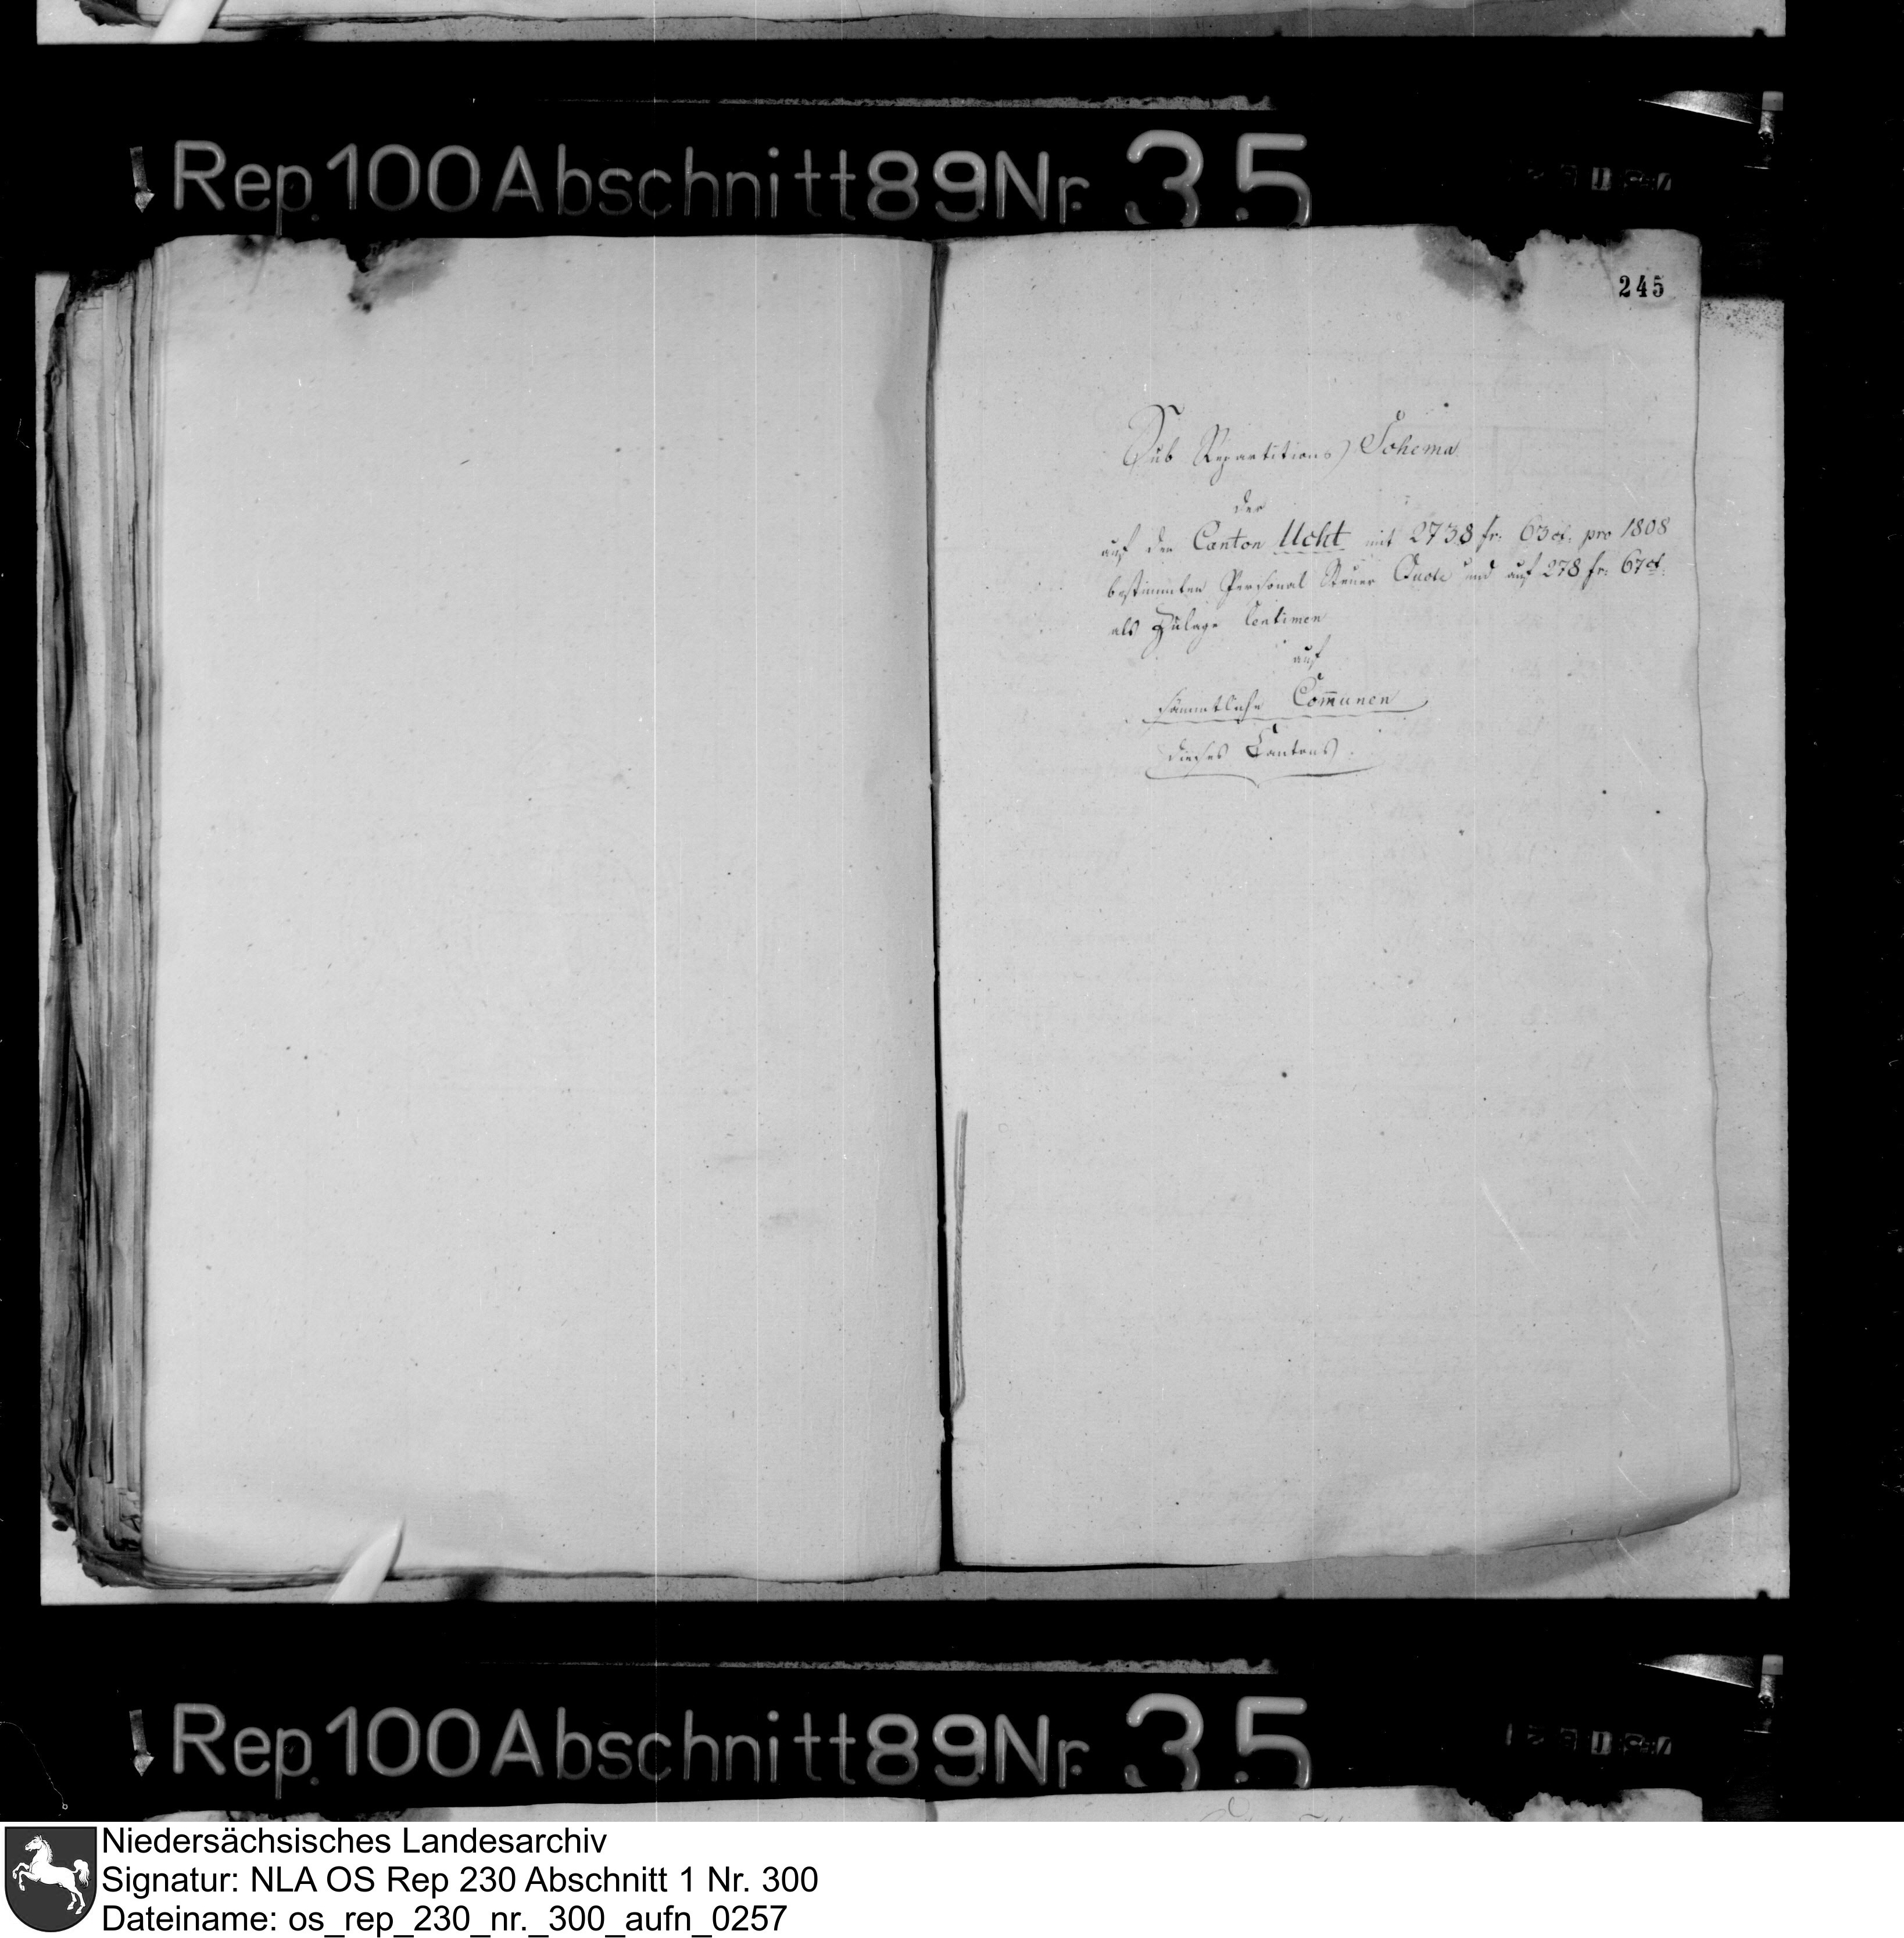 Rep. 100 Abschnitt 89 Nr. 35
245
Sub Repartitions Schema
der
auf den Canton Ucht mit 2738 fr: 63 ct: pro 1808
bestimmten Personal Steuer Quote und auf 278 fr: 67 ct:
als Zulage Centimen
auf
sämmtliche Com̅unen
dieses Cantons.
Rep. 100 Abschnitt 89 Nr. 35
Niedersächsisches Landesarchiv
Signatur: NLA OS Rep 230 Abschnitt 1 Nr. 300
Dateiname: os_rep_230_nr._300_aufn_0257